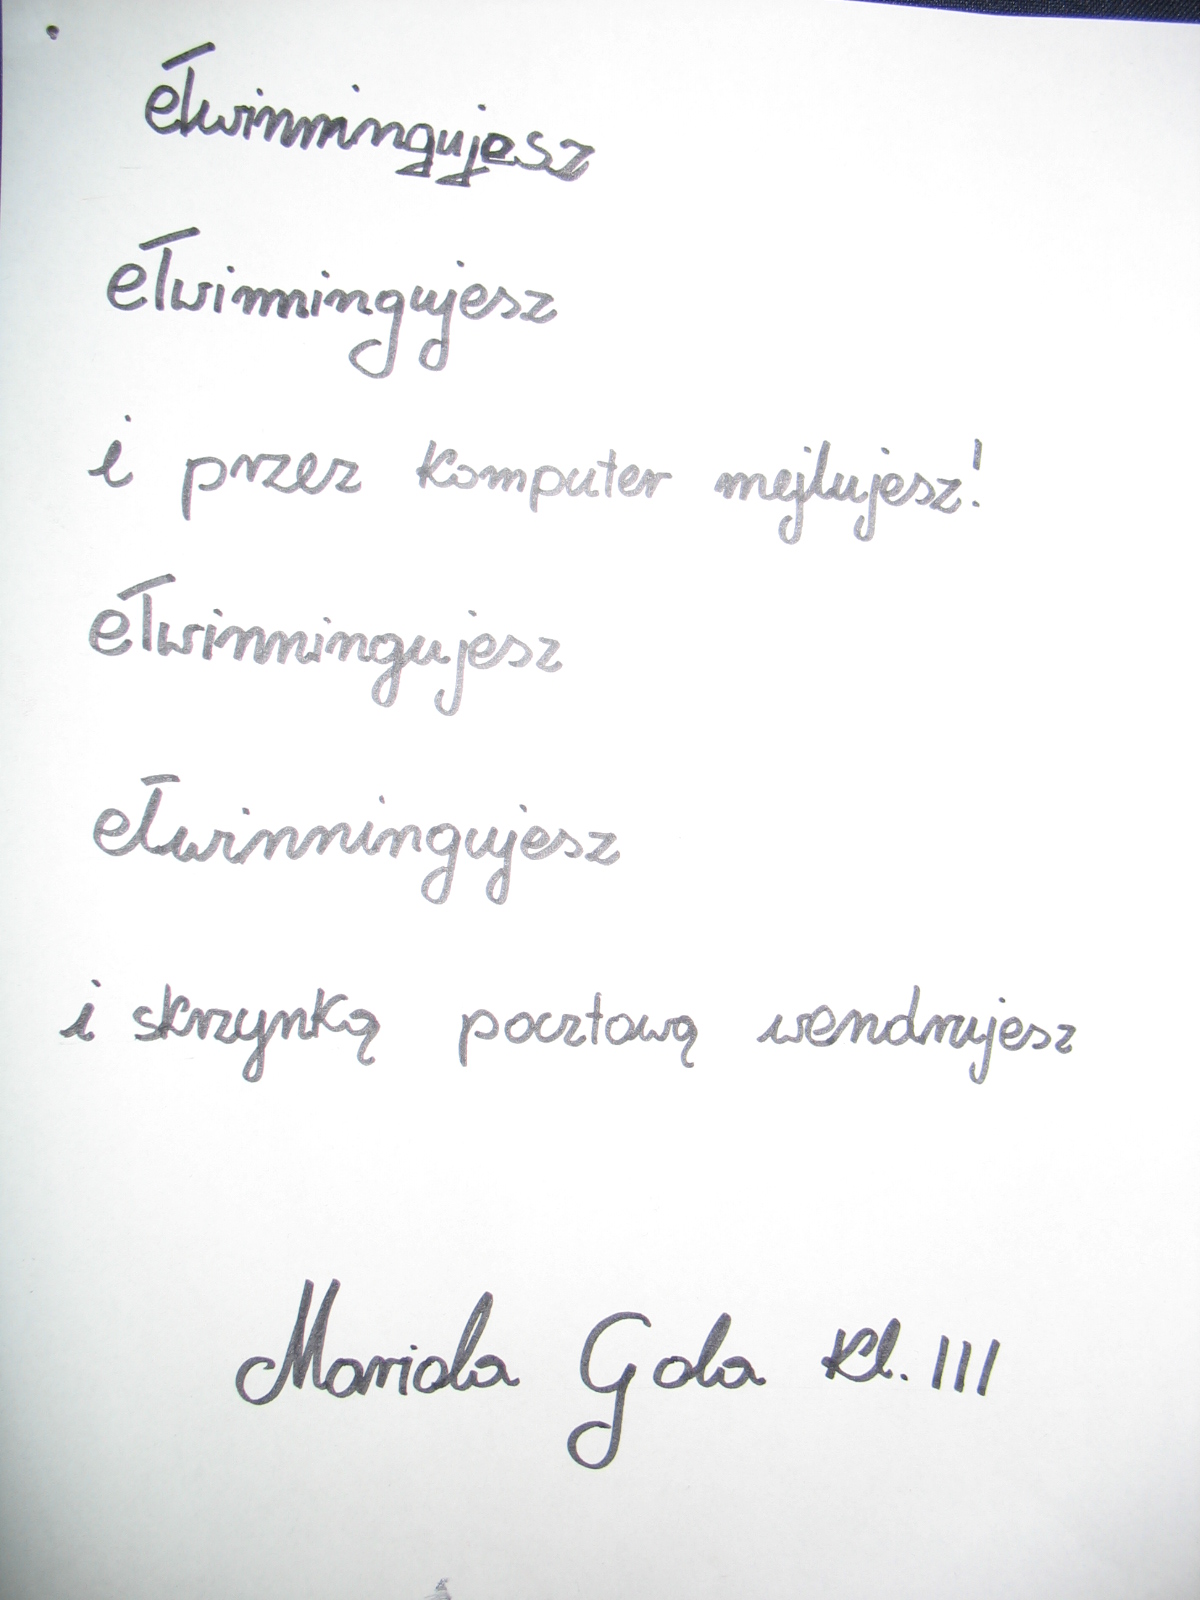 eTwinningujesz
eTwinningujesz
i przez komputer mejlujesz!
eTwinningujesz
eTwinningujesz
i skrzynką pocztową wendrujesz
Mariola Gola kl. III